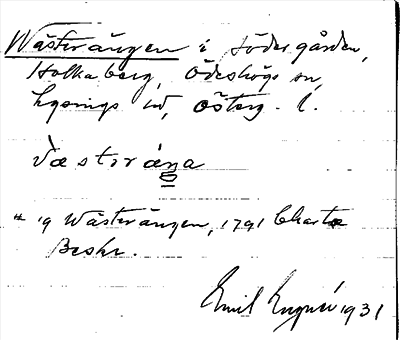 Wästerängen i Södergården,
Holkaberg, Ödeshögs sn,
Lysings hd, Österg. l.
Västəräŋa
19 Wästerängen, 1791 Charta
Beskr.
Emil 1931